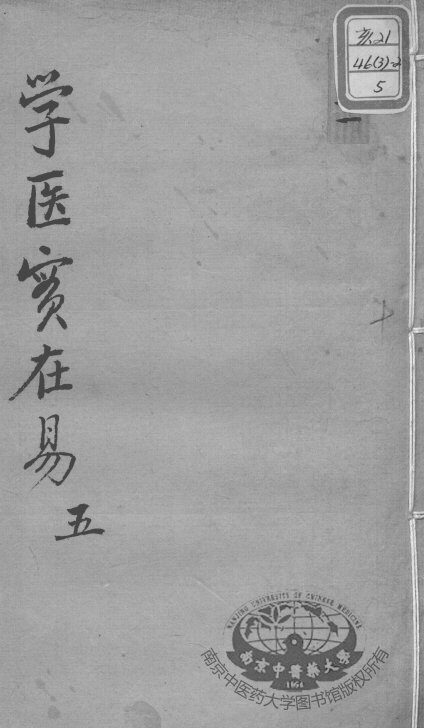 亥21
46(3)-2
5
学医实在易
五
NANJING UNIVERSITY OF CHINESE MEDICINE
南京中醫藥大學
1954
南京中医药大学图书馆版权所有